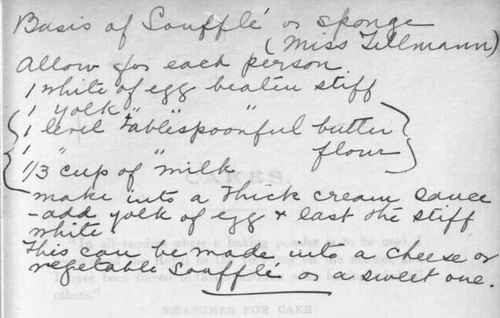 Basis of Soufflé or sponge
(Miss Tillmann)
Allow for each person.
1 white of egg beaten stiff
1 yolk " " "
1 level Tablespoonful butter
1 " " flour
1/3 cup of milk
make into a thick cream sauce
- add yolk of egg & last the stiff
white
This can be made into a cheese or
vegetable Soufflé or a sweet one.
CAKES.
MEASURES FOR CAKE